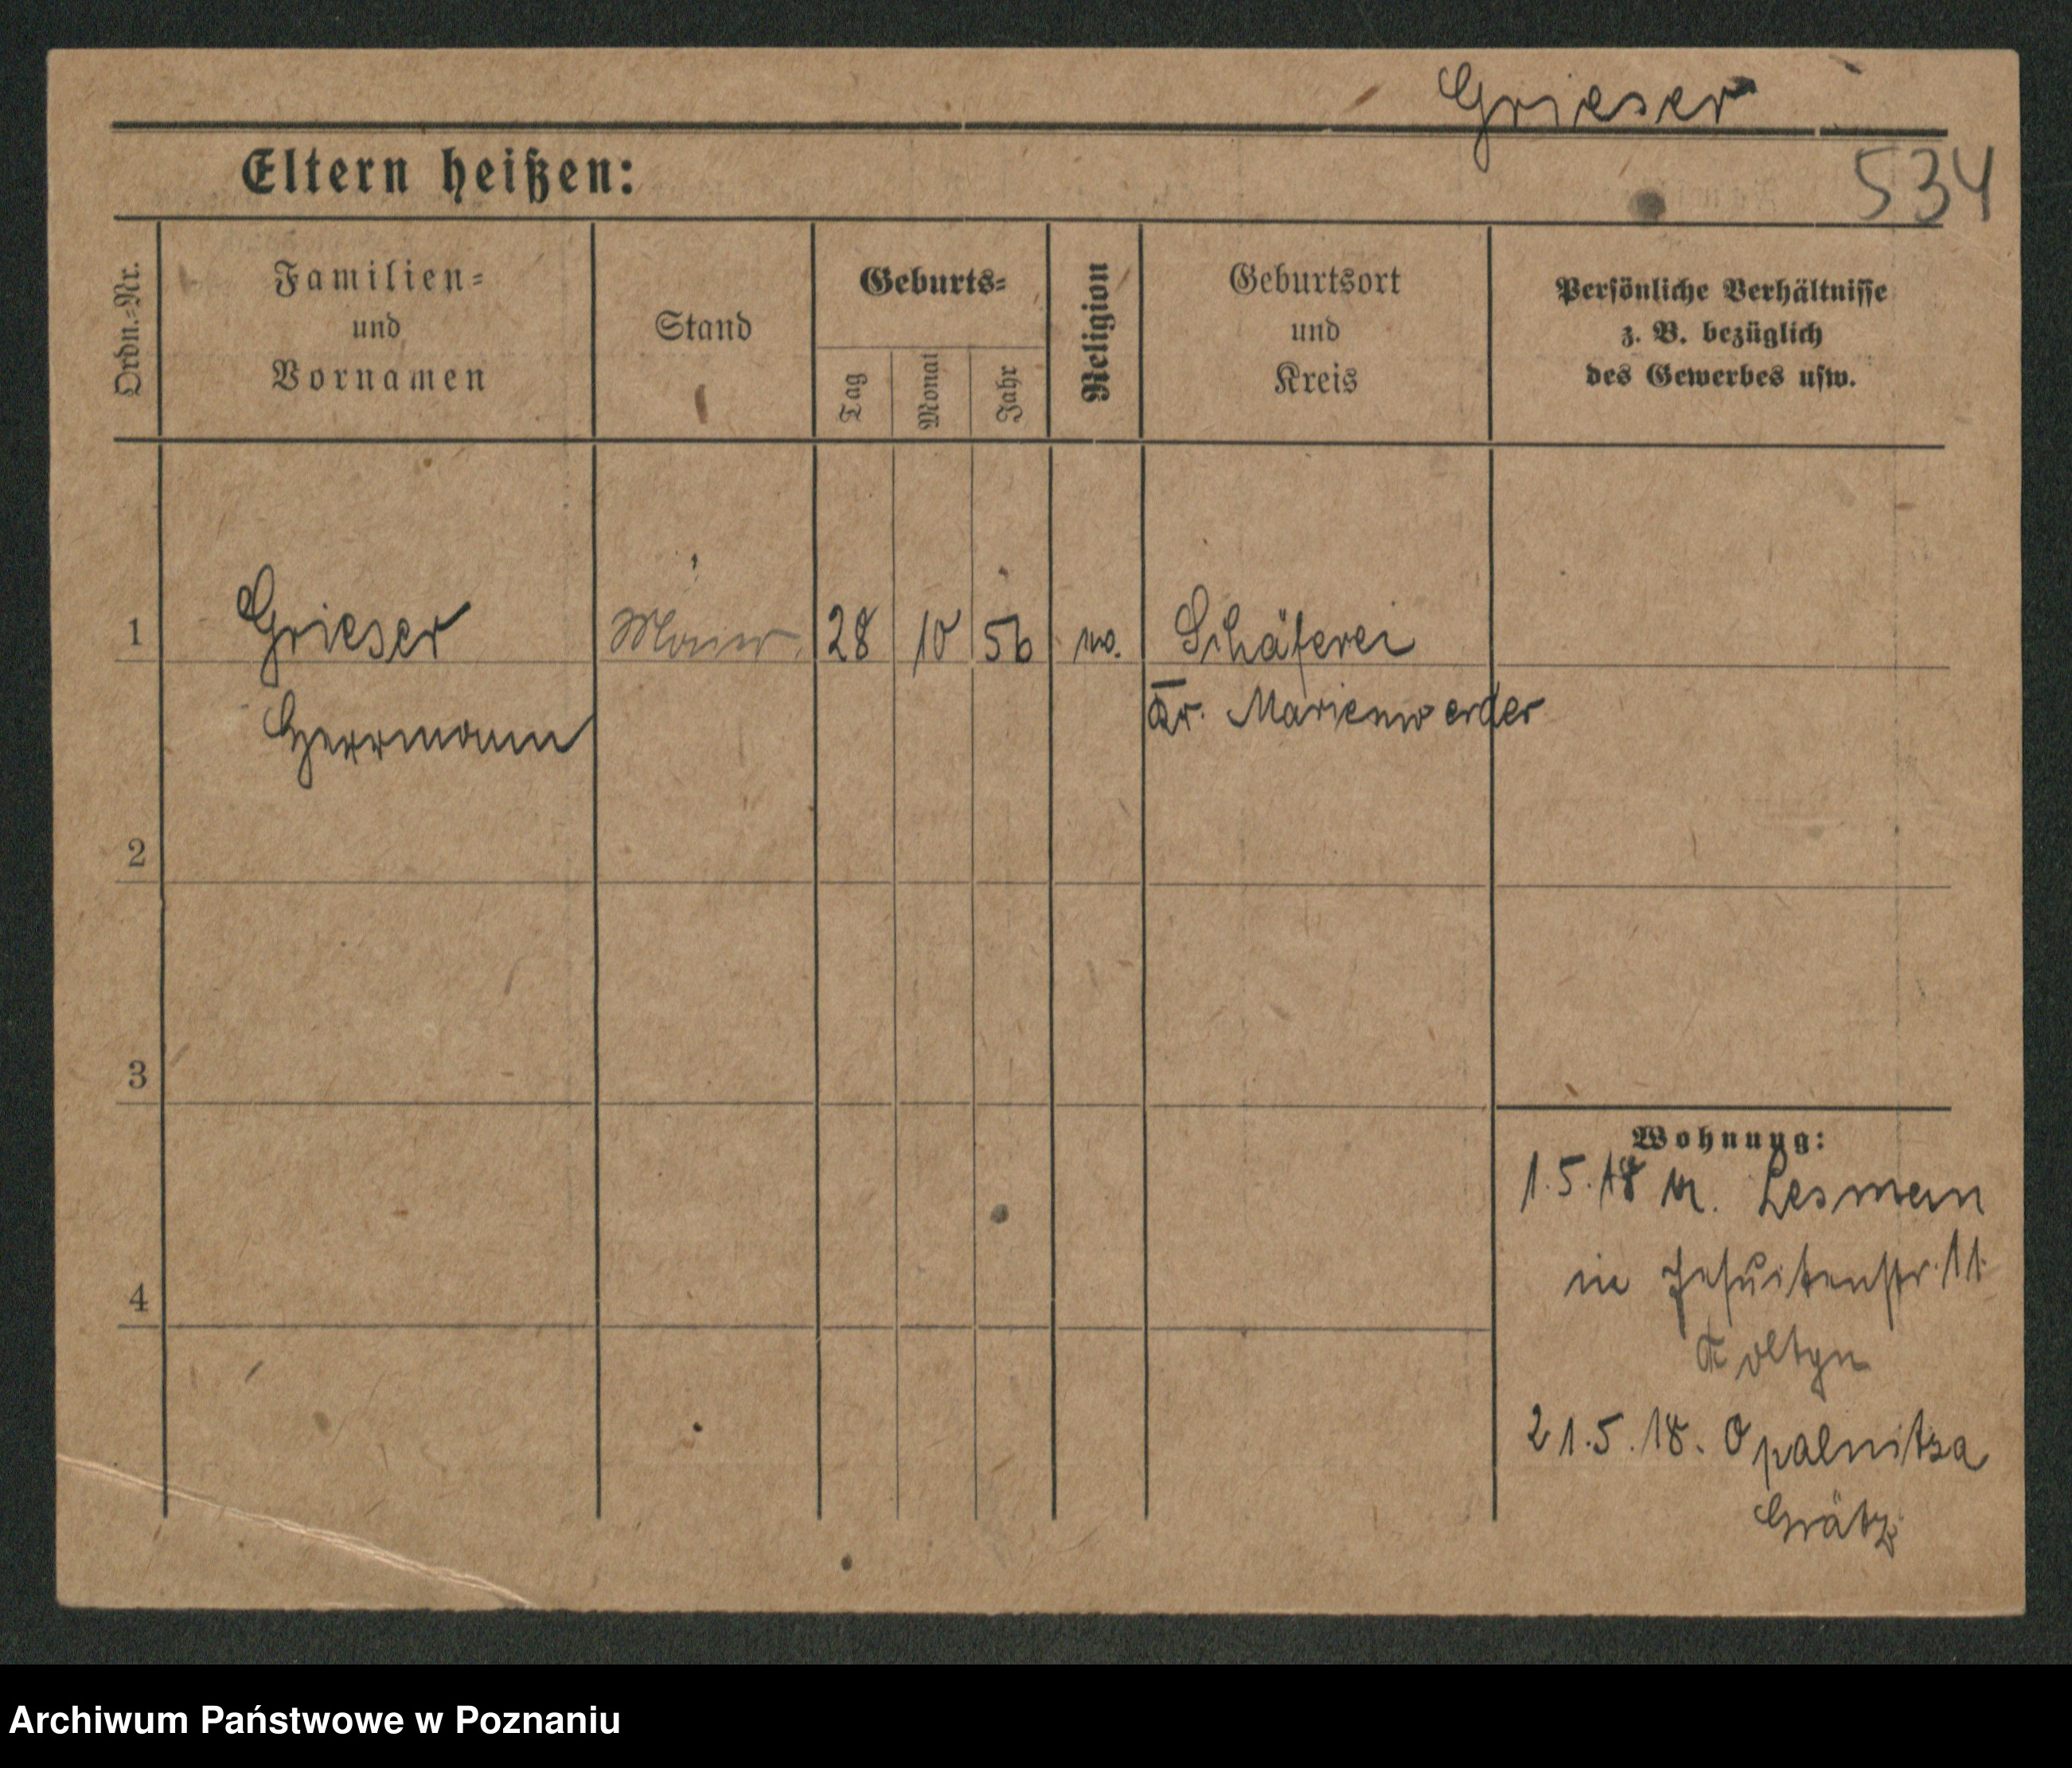 Grieser
Eltern heißen:
534
Ordn.-Nr.
Familien-
und
Vornamen
Stand
Geburts-
Tag
Monat
Jahr
Religion
Geburtsort
und
Kreis
Persönliche Verhältnisse
z. B. bezüglich
des Gewerbes usw.
1
Grieser
28
10
56
Schäferei
Herrmann
Kr. Marienwerder
2
3
Wohnung:
1.5.18
in Jesuitenstr. 11
4
21.5.18. Opalnitza
Grätz
Archiwum Państwowe w Poznaniu